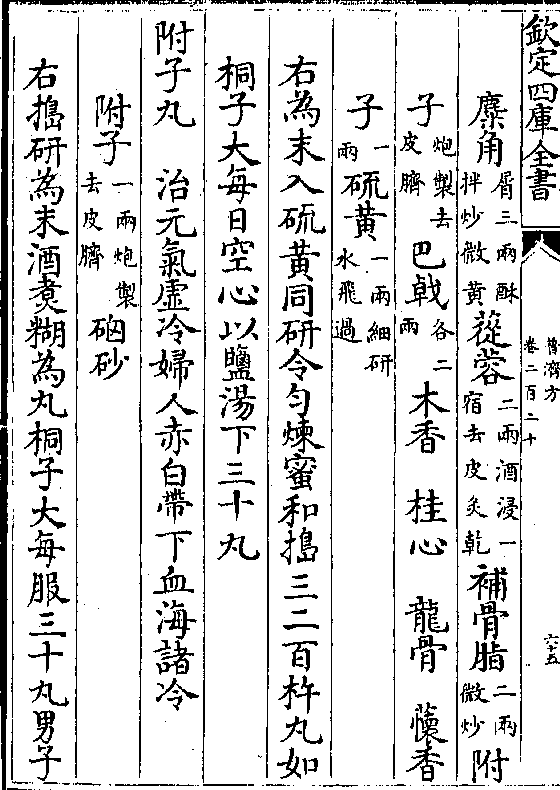 欽定四庫全書
普濟方
卷二百二十
六十五
麋角屑三兩酥拌炒微黄蓯蓉二兩酒浸一宿去皮炙乾補骨脂二兩微炒附
子炮製去皮臍巴戟各二兩木香 桂心 龍骨 蘹香
子一兩硫黄一兩細研水飛過
右為末入硫黄同研令勻煉蜜和搗三二百杵丸如
桐子大每日空心以鹽湯下三十丸
附子丸 治元氣虛冷婦人赤白帶下血海諸冷
附子一兩炮製去皮臍硇砂
右搗研為末酒煑糊為丸桐子大每服三十丸男子